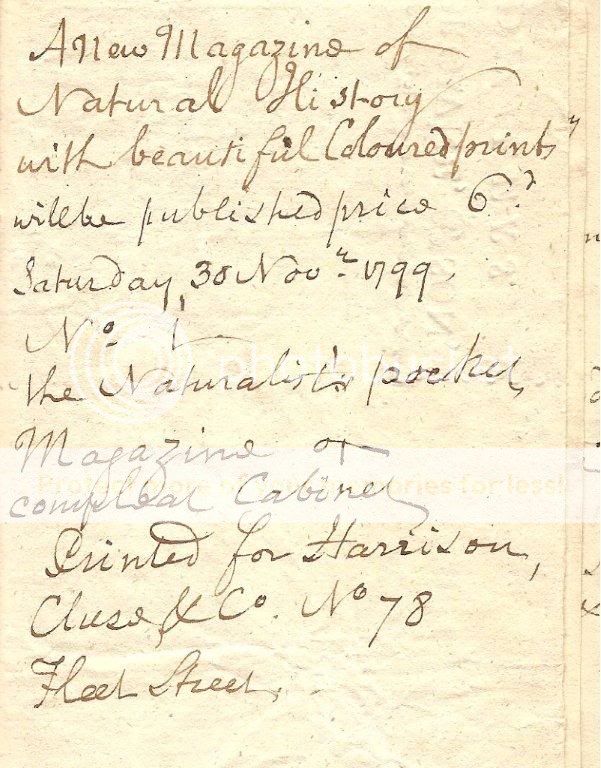 A New Magazine of
Natural History
with beautiful Coloured prints
will be published price 6.d
Saturday, 30 Novr. 1799
No. 1
the Naturalist's pocket
Magazine or
compleat Cabinet
Printed for Harrison,
Cluse & Co. No 78
Fleet Street.
photobucket
Protect more of your memories for less!